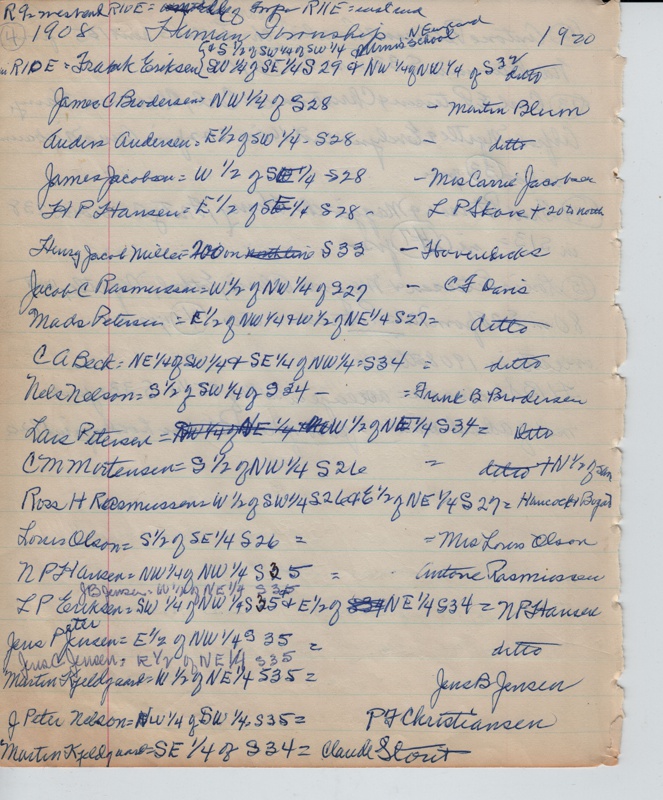 R 9 = west end R10E = of twp R11E = east end
④ 1908 Human Township NE end 1920
{& S½ of SW¼ of SW¼ school
R10E = Frank Eriksen {SW¼ of SE¼ S29 & NW¼ of NW¼ of S32 ditto
James C Brodersen = NW¼ of S28 - Martin Blum
Anders Andersen = E½ of SW¼ - S28 - ditto
James Jacobsen = W½ of SE¼ S28 - Mrs Carrie Jacobsen
H P Hansen = E½ of SE¼ S28 - L P Skovs + 20th north
Henry Jacob Miller = 200 on north line S33 - Hovendicks
Jacob C Rasmussen = W½ of NW¼ of S27 - C F Davis
Mads Petersen = E½ of NW¼ & W½ of NE¼ S27 = ditto
C A Beck = NE¼ of SW¼ & SE¼ of NW¼ = S34 = ditto
Nels Nelson = S½ of SW¼ of S34 - = Frank B Brodersen
Lars Petersen = NW¼ of NE¼ W½ of NE¼ S34 = ditto
C M Mortensen = S½ of NW¼ S26 = ditto + N½ of
Ross H Rasmussen = W½ of SW¼ S26 & E½ of NE¼ S27 = Hancock &
Louis Olson = S½ of SE¼ S26 = = Mrs Louis Olson
N P Hansen = NW¼ of NW¼ S35 = Antone Rasmussen
J B Jensen = W½ of NE¼ S35
L P Eriksen = SW¼ of NW¼ S35 & E½ of S34 NE¼ S34 = N P Hansen
Jens Peter Jensen = E½ of NW¼ S35 = ditto
Jens C Jensen = E½ of NE¼ S35
Martin Kjeldgaard = W½ of NE¼ S35 = Jens B Jensen
J Peter Nelson = NW¼ of SW¼ S35 = P F Christiansen
Martin Kjeldgaard = SE¼ of S34 = Claude Stout